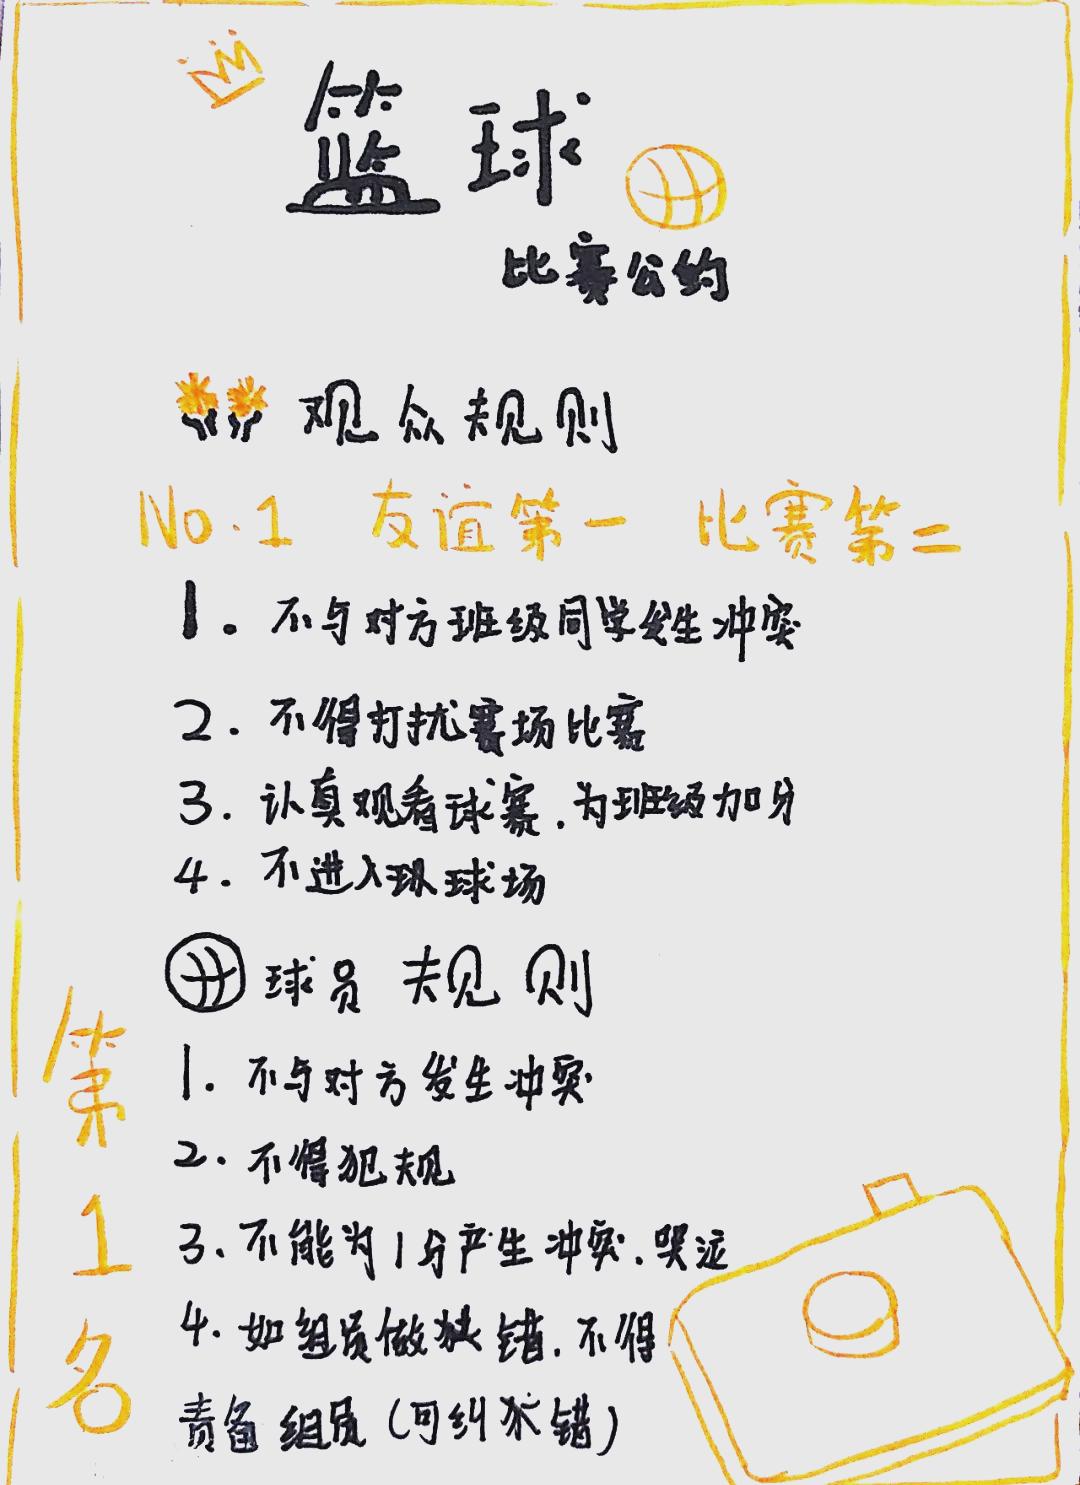 篮球
比赛公约
观众规则
No.1 友谊第一 比赛第二
1. 不与对方班级同学发生冲突
2. 不得打扰赛场比赛
3. 认真观看球赛.为班级加分
4. 不进入球场
球员规则
1. 不与对方发生冲突
2. 不得犯规
3、不能为1分产生冲突.哭泣
4. 如组员做错.不得
责备组员(可纠错)
第1名